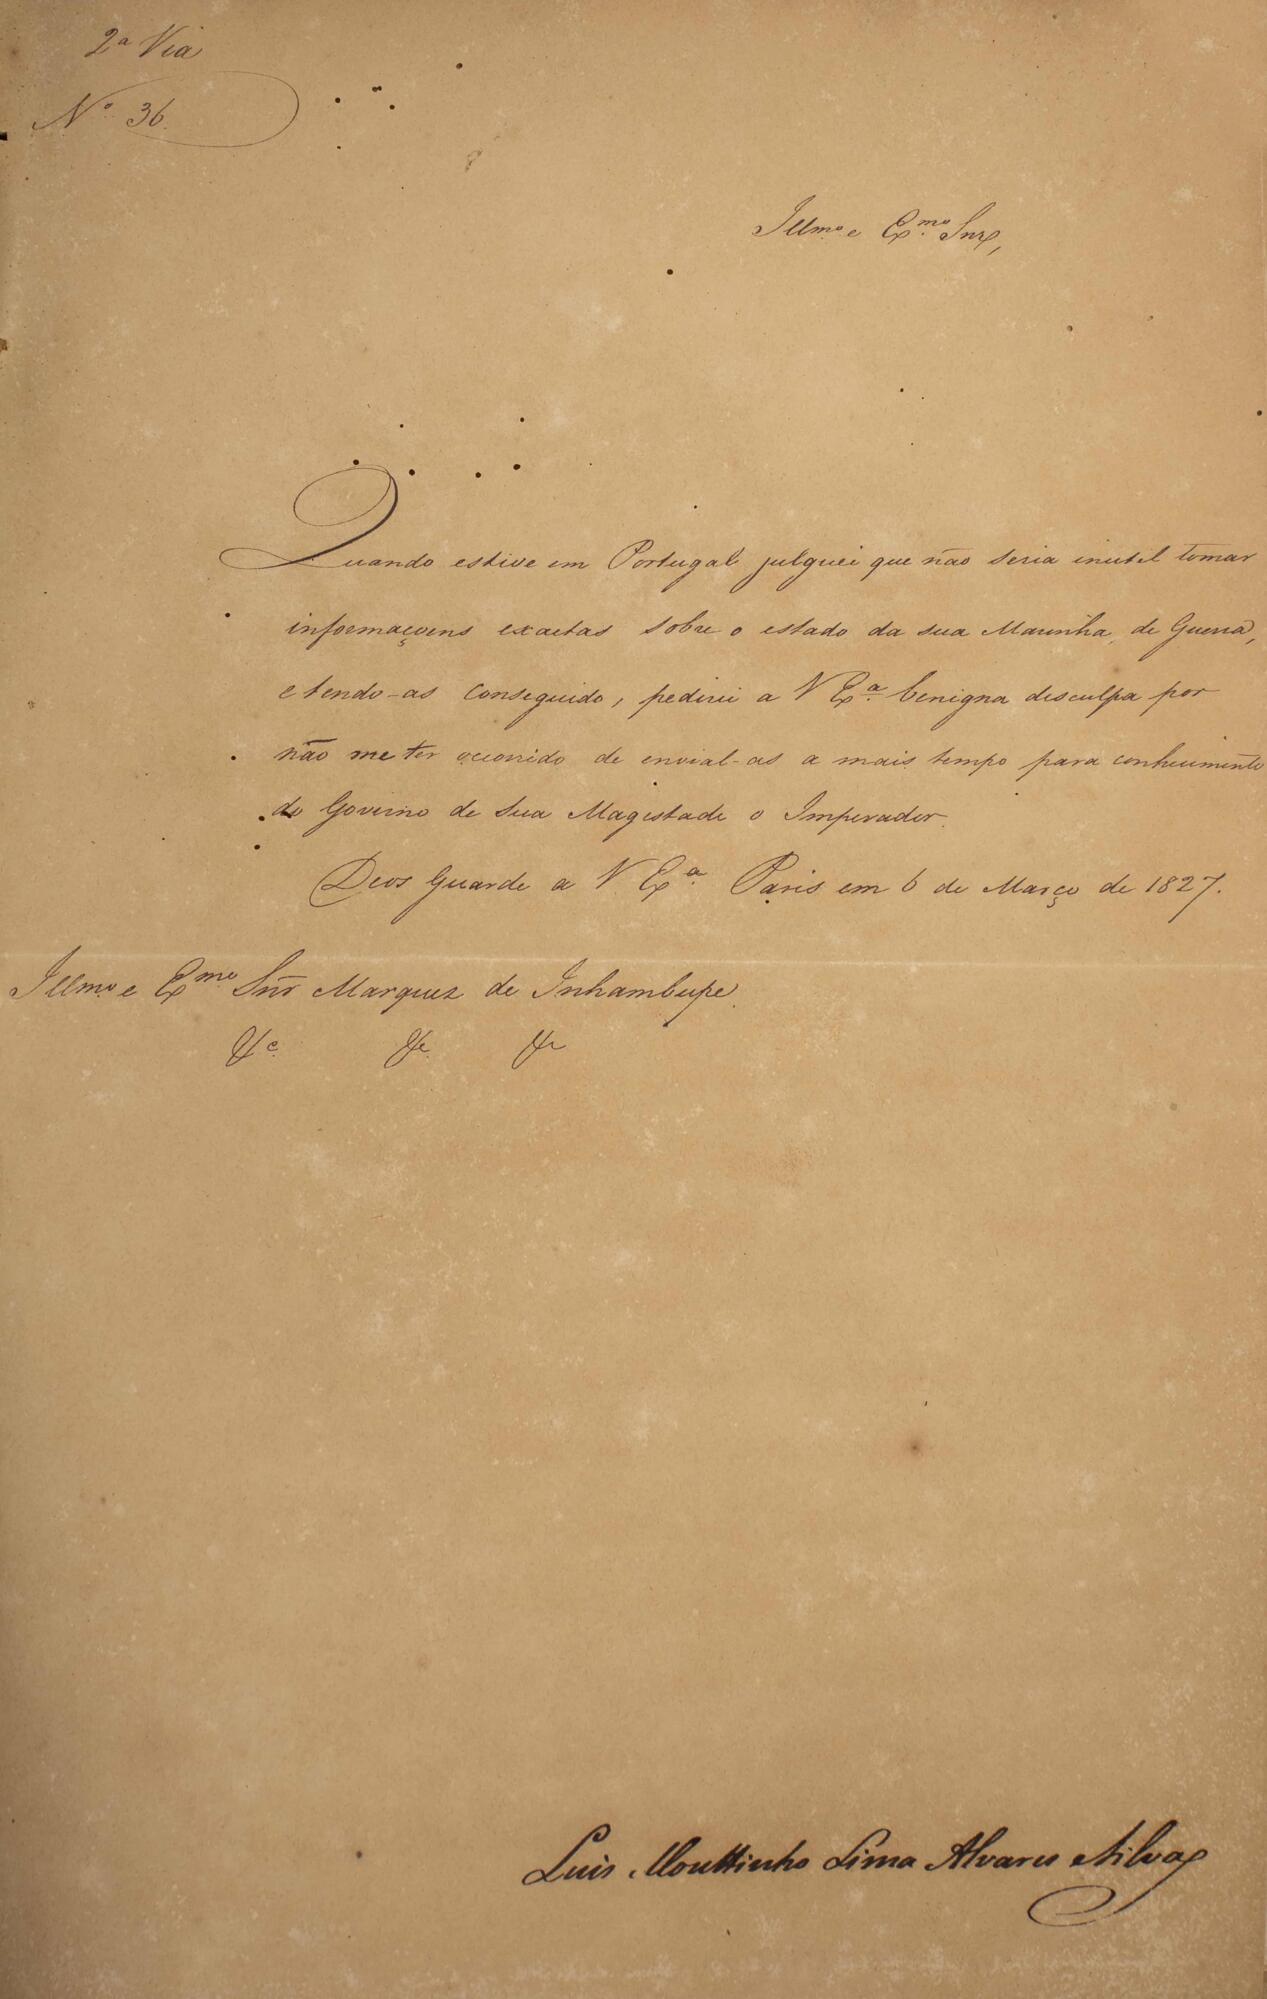 2ª Via
Nº 36.
Illmº e Exmº Snr,
Quando estive em Portugal julguei que não seria inutil tomar
informaçoens exactas sobre o estado da sua Marinha de Guerra,
e tendo-as conseguido, pedirei a V Exª benigna desculpa por
não me ter occorrido de envial-as a mais tempo para conhecimento
do Governo de Sua Magestade o Imperador.
Deos Guarde a V. Exª Paris em 6 de Março de 1827.
Illmº e Exmº Snr Marquez de Inhambupe.
&c. &c. &c
Luis Mouttinho Lima Alvares e Silva